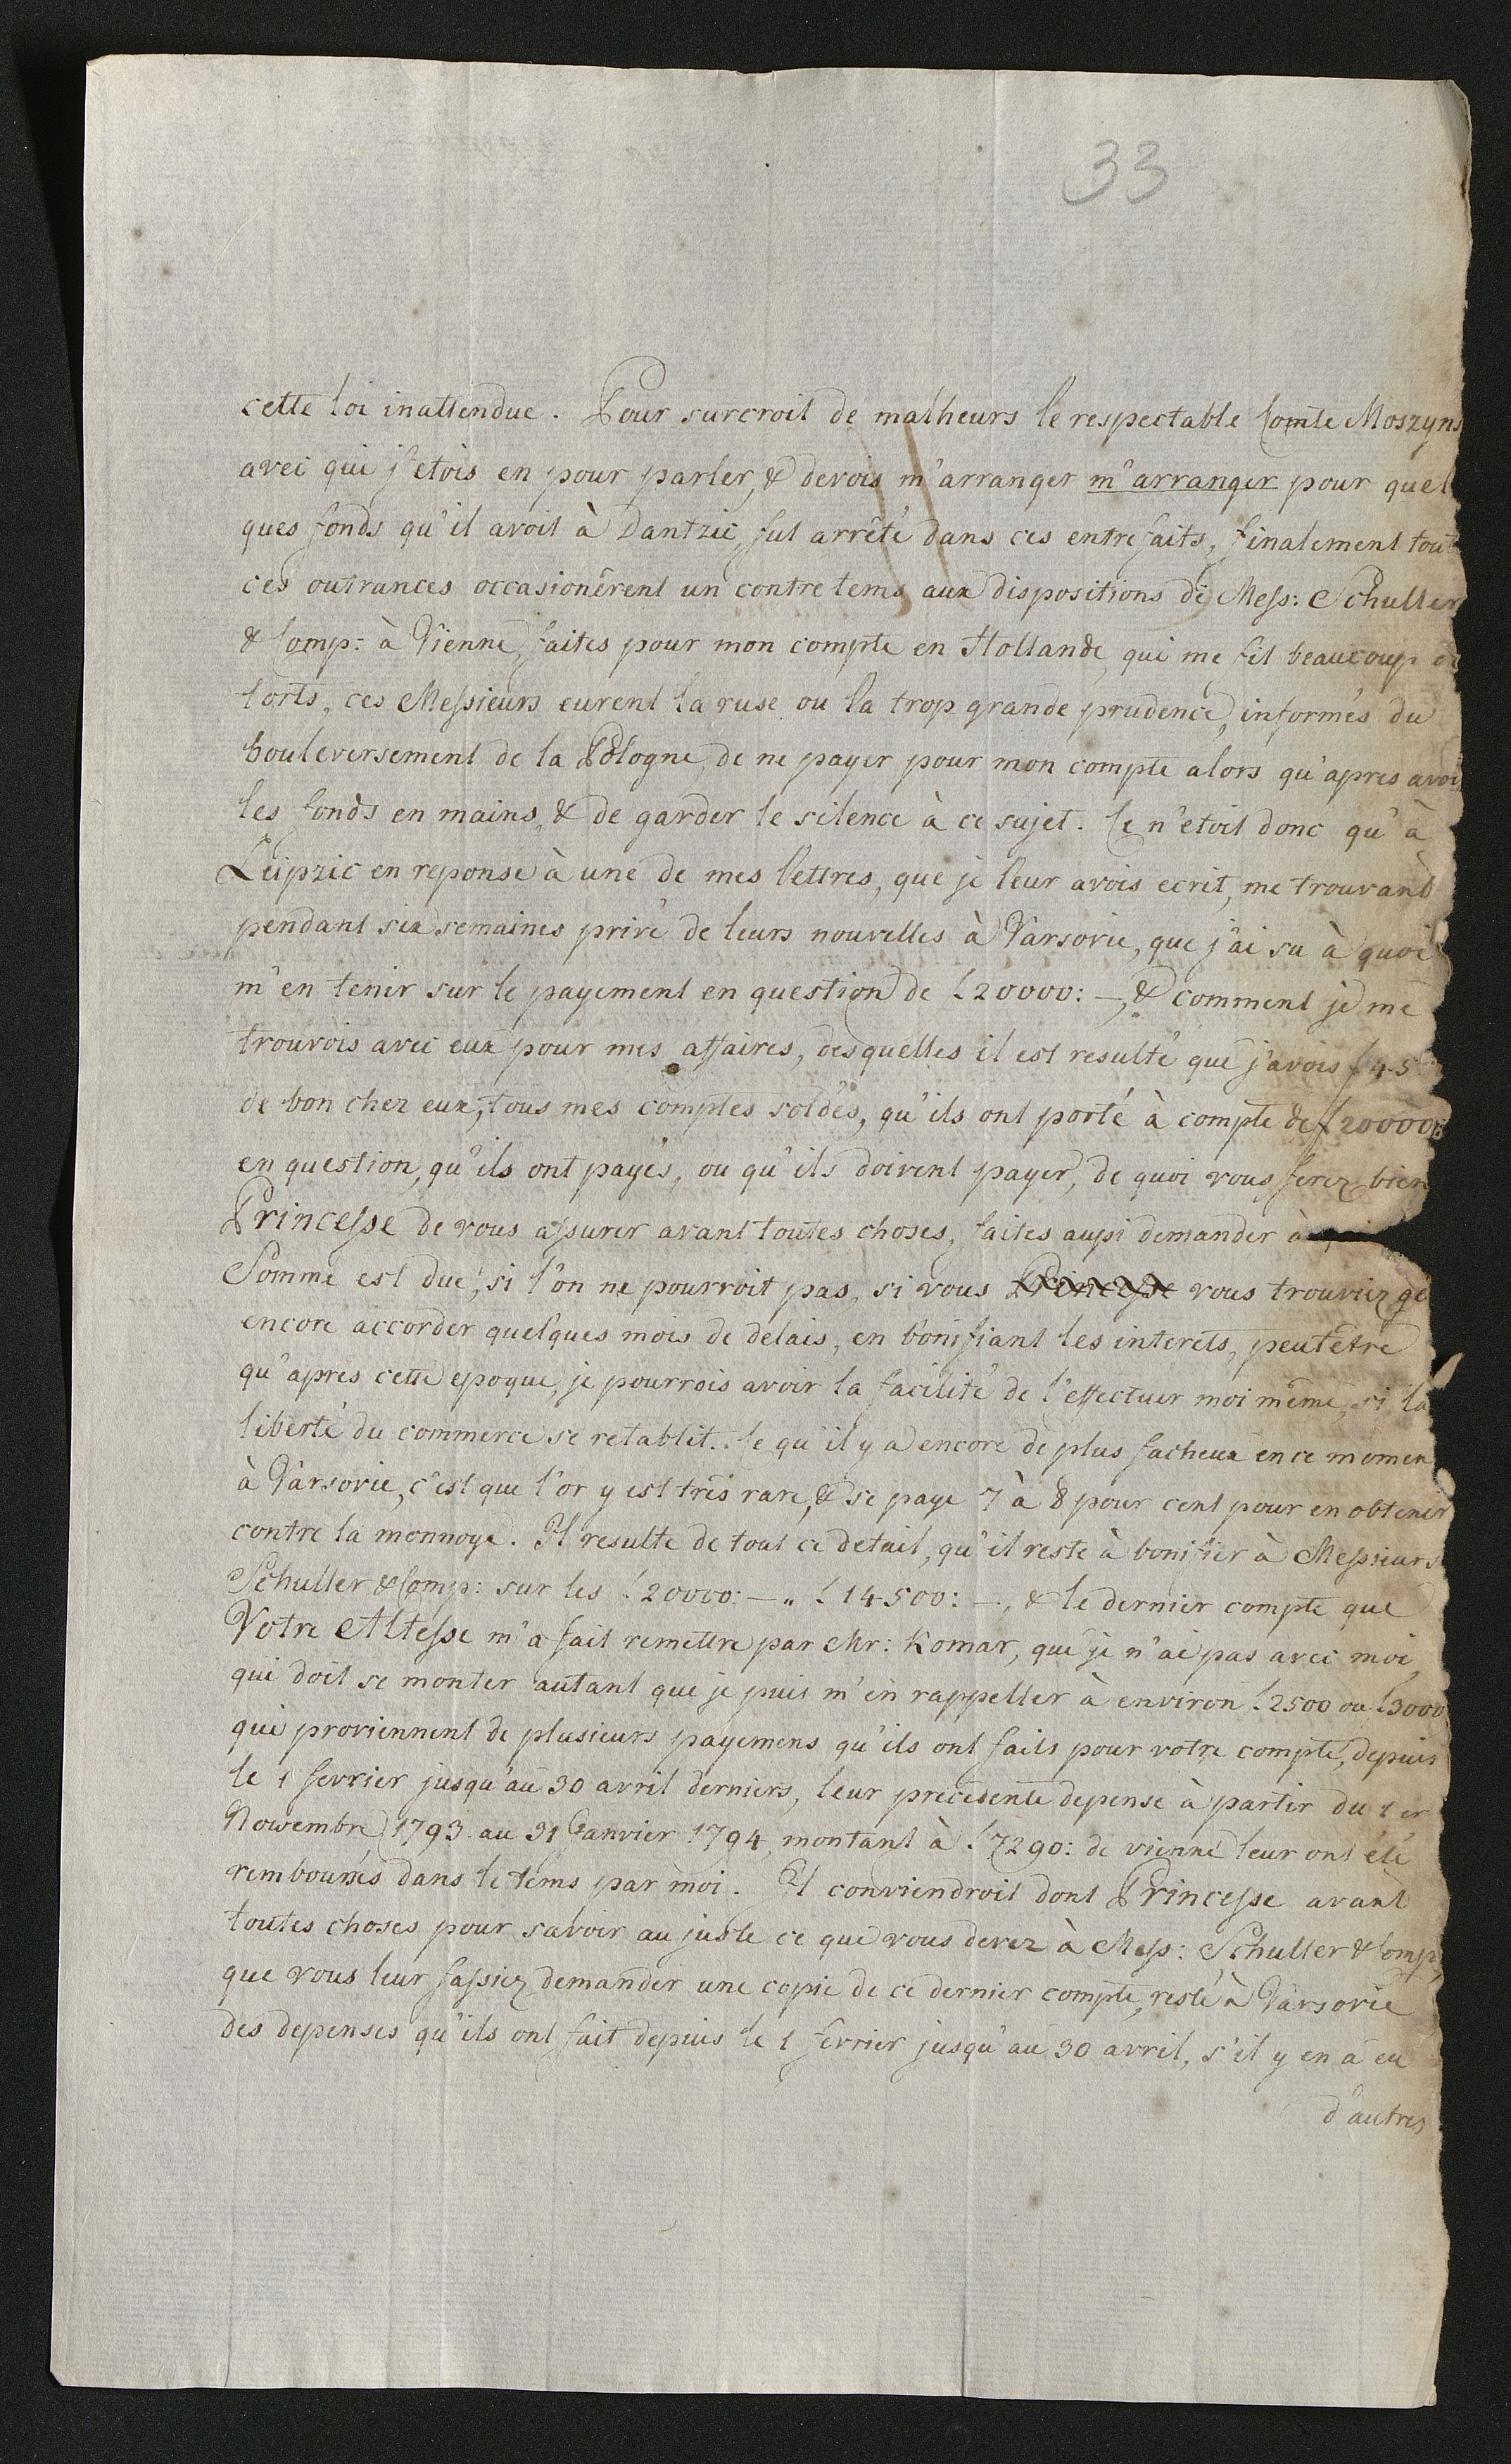 33
cette loi inattendue. Pour surcroit de malheurs le respectable Comte Moszyns
avec qui j'etois en pour parler, & devois m'arranger m'arranger pour quel
ques fonds qu'il avoit à Dantzic, fut arrêté dans ces entrefaits, finalement tout
ces outrances occasionêrent un contretems aux dispositions de Mess: Schuller
& Comp: à Vienne, faites pour mon compte en Hollande, qui me fit beaucoup de
torts, ces Messieurs eurent la ruse ou la trop grande prudence, informés du
bouleversement de la Pologne, de ne payer pour mon compte alors qu'apres avoi
les fonds en mains, & de garder le silence à ce sujet. Ce n'etoit donc qu'à
Leipzic en reponse à une de mes lettres, que je leur avois ecrit, me trouvant
pendant six semaines privé de leurs nouvelles à Varsovie, que j'ai su à quoi
m'en tenir sur le payement en question de f 20000: —, & comment je me
trouvois avec eux pour mes affaires, desquelles il est resulté que j'avois f 45
de bon chez eux, tous mes comptes soldés, qu'ils ont porté à compte de f 20000:
en question, qu'ils ont payés, ou qu'ils doivent payer, de quoi vous ferez bien
Princesse de vous assurer avant toutes choses, faites aussi demander à
Somme est due, si l'on ne pourroit pas, si vous Princesse vous trouviez gê
encore accorder quelques mois de delais, en bonifiant les interets, peutêtre
qu'apres cette epoque, je pourrois avoir la facilité de l'effectuer moi même, si la
liberté du commerce se retablit. Ce qu'il y a encore de plus facheux en ce momen
à Varsovie, c'est que l'or y est très rare, & se paye 7 à 8 pour cent pour en obtenir
contre la monnoye. Il resulte de tout ce detail, qu'il reste à bonifier à Messieurs
Schuller & Comp: sur les f 20000: — " f 14500: —, & le dernier compte que
Votre Altesse m'a fait remettre par Mr: Komar, que je n'ai pas avec moi,
qui doit se monter autant que je puis m'en rappeller à environ f 2500 ou f 3000
qui proviennent de plusieurs payemens qu'ils ont faits pour votre compte, depuis
le 1 fevrier jusqu'au 30 avril derniers, leur precedente depense à partir du 1er
Nowembre 1793 au 31 Janvier 1794, montant à f 7290: de vienne leur ont été
remboursés dans le tems par moi. Il conviendroit dont Princesse avant
toutes choses pour savoir au juste ce que vous devez à Mess: Schuller & Comp,
que vous leur fassiez demander une copie de ce dernier compte, resté à Varsovie
des depenses qu'ils ont fait depuis le 1 fevrier jusqu'au 30 avril, s'il y en a eu
d'autres